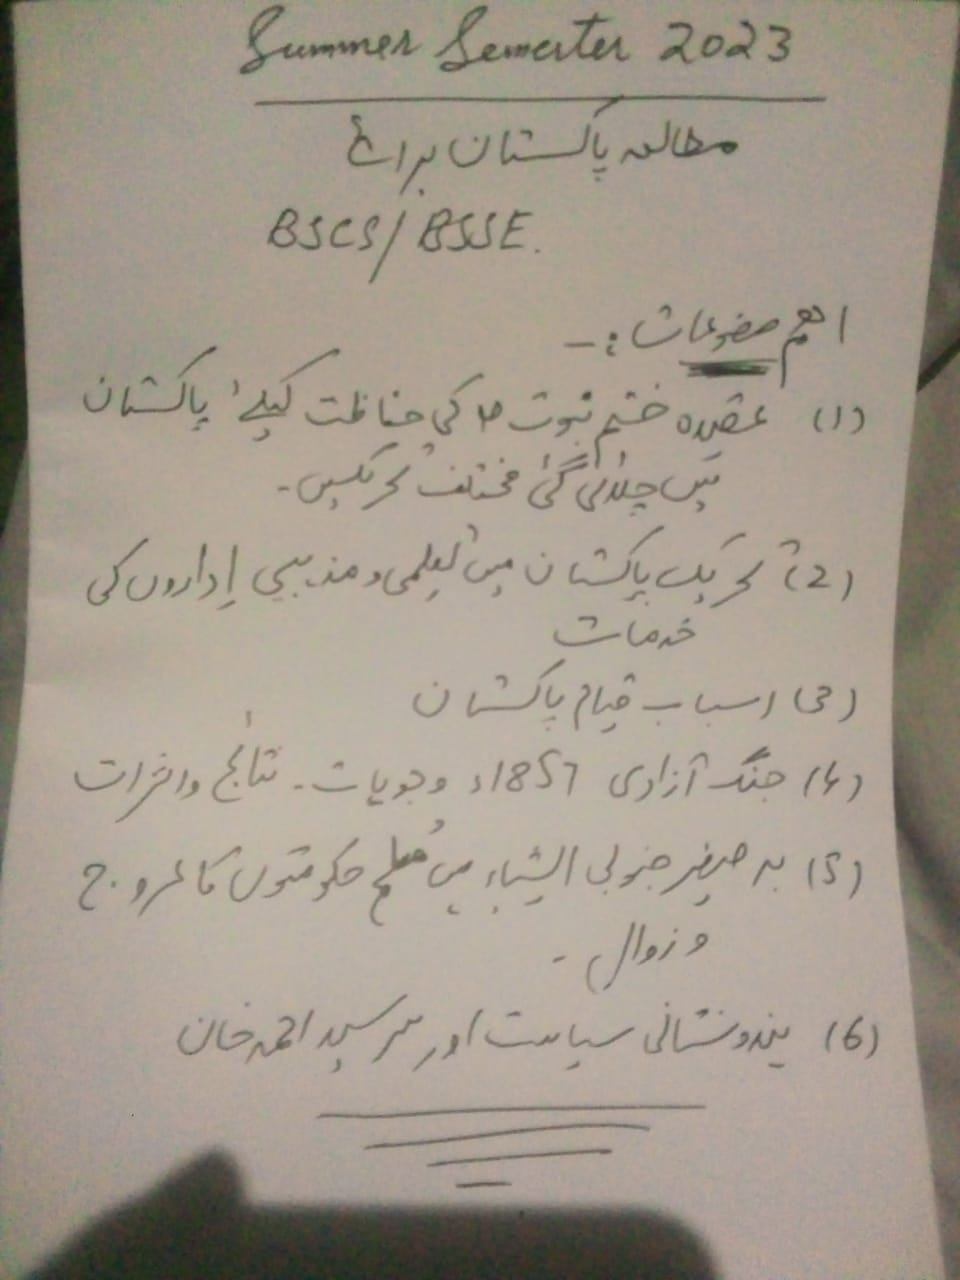 Summer Semester 2023
مطالعہ پاکستان برائے
BSCS/BSSE.
اہم موضوعات :-
(1) عقیدہ ختم نبوت ؐ کی حفاظت کیلئے پاکستان
میں چلائی گئی مختلف تحریکیں۔
(2) تحریک پاکستان میں تعلیمی و مذہبی اِداروں کی
خدمات
(3) اسباب قیام پاکستان
(4) جنگ آزادی 1857ء وجوہات۔ نتائج و اثرات
(5) برصغیر جنوبی ایشیاء میں مسلم حکومتوں کا عروج
و زوال -
(6) ہندوستانی سیاست اور سر سید احمد خان